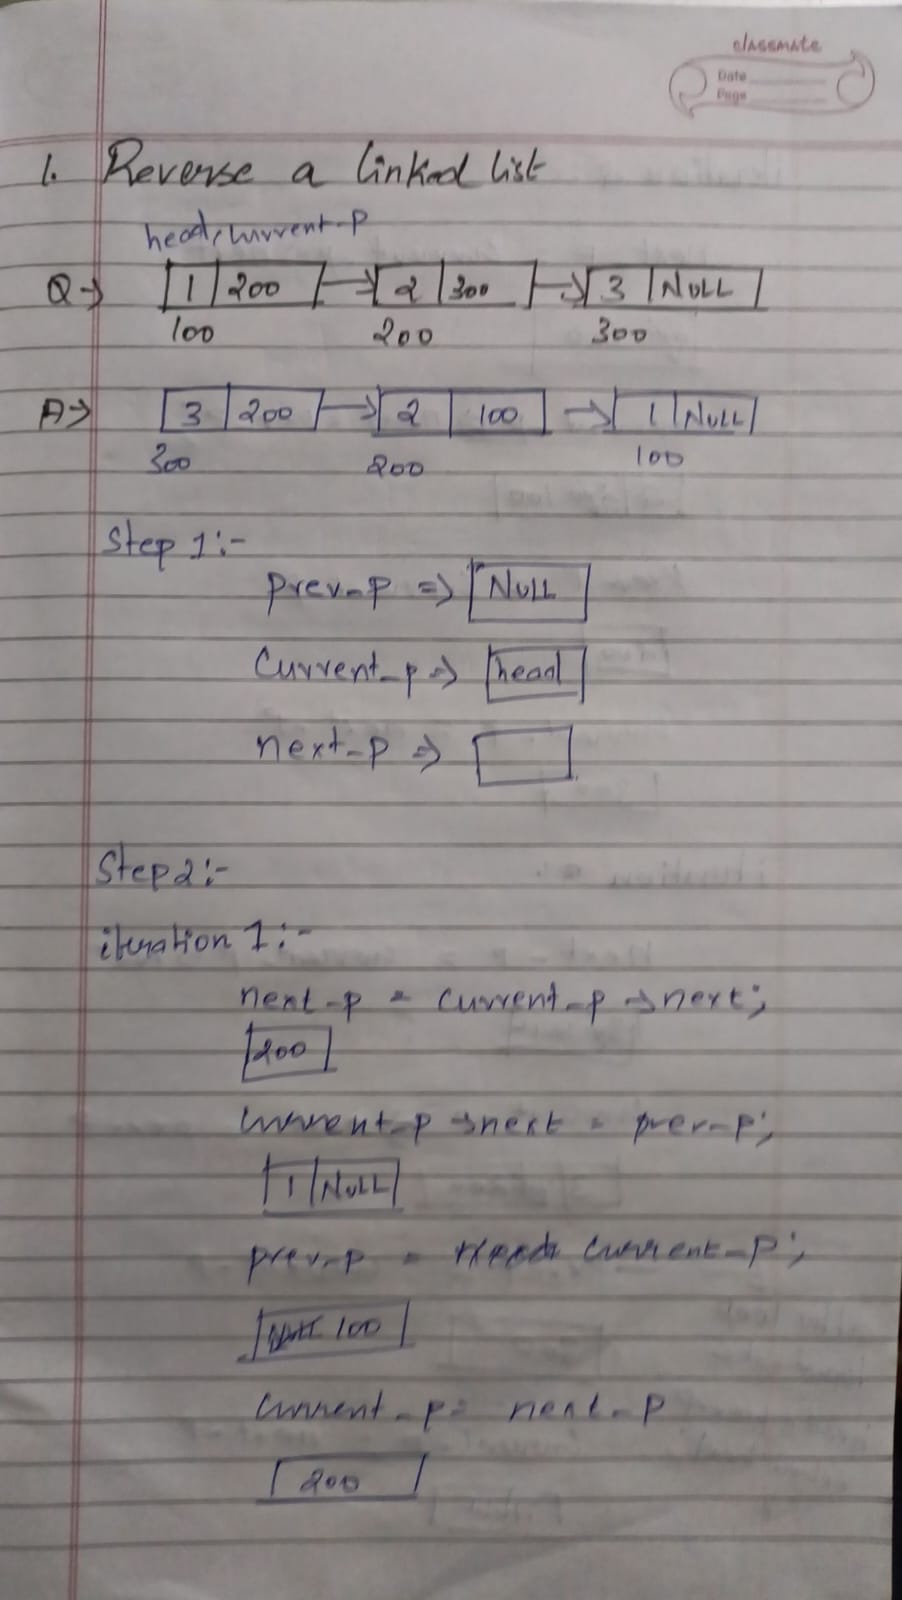 classmate
Date
Page
1. Reverse a linked list
head, current-p
Q-> 1 | 200 -> 2 | 300 -> 3 | NULL
100 200 300
A-> 3 | 200 -> 2 | 100 -> 1 | NULL
300 200 100
Step 1:-
prev-p => NULL
Current-p => head
next-p =>
Step 2:-
iteration 1:-
next-p = current-p -> next;
200
current-p -> next = prev-p;
1 | NULL
prev-p = current-p;
100
current-p = next-p
200